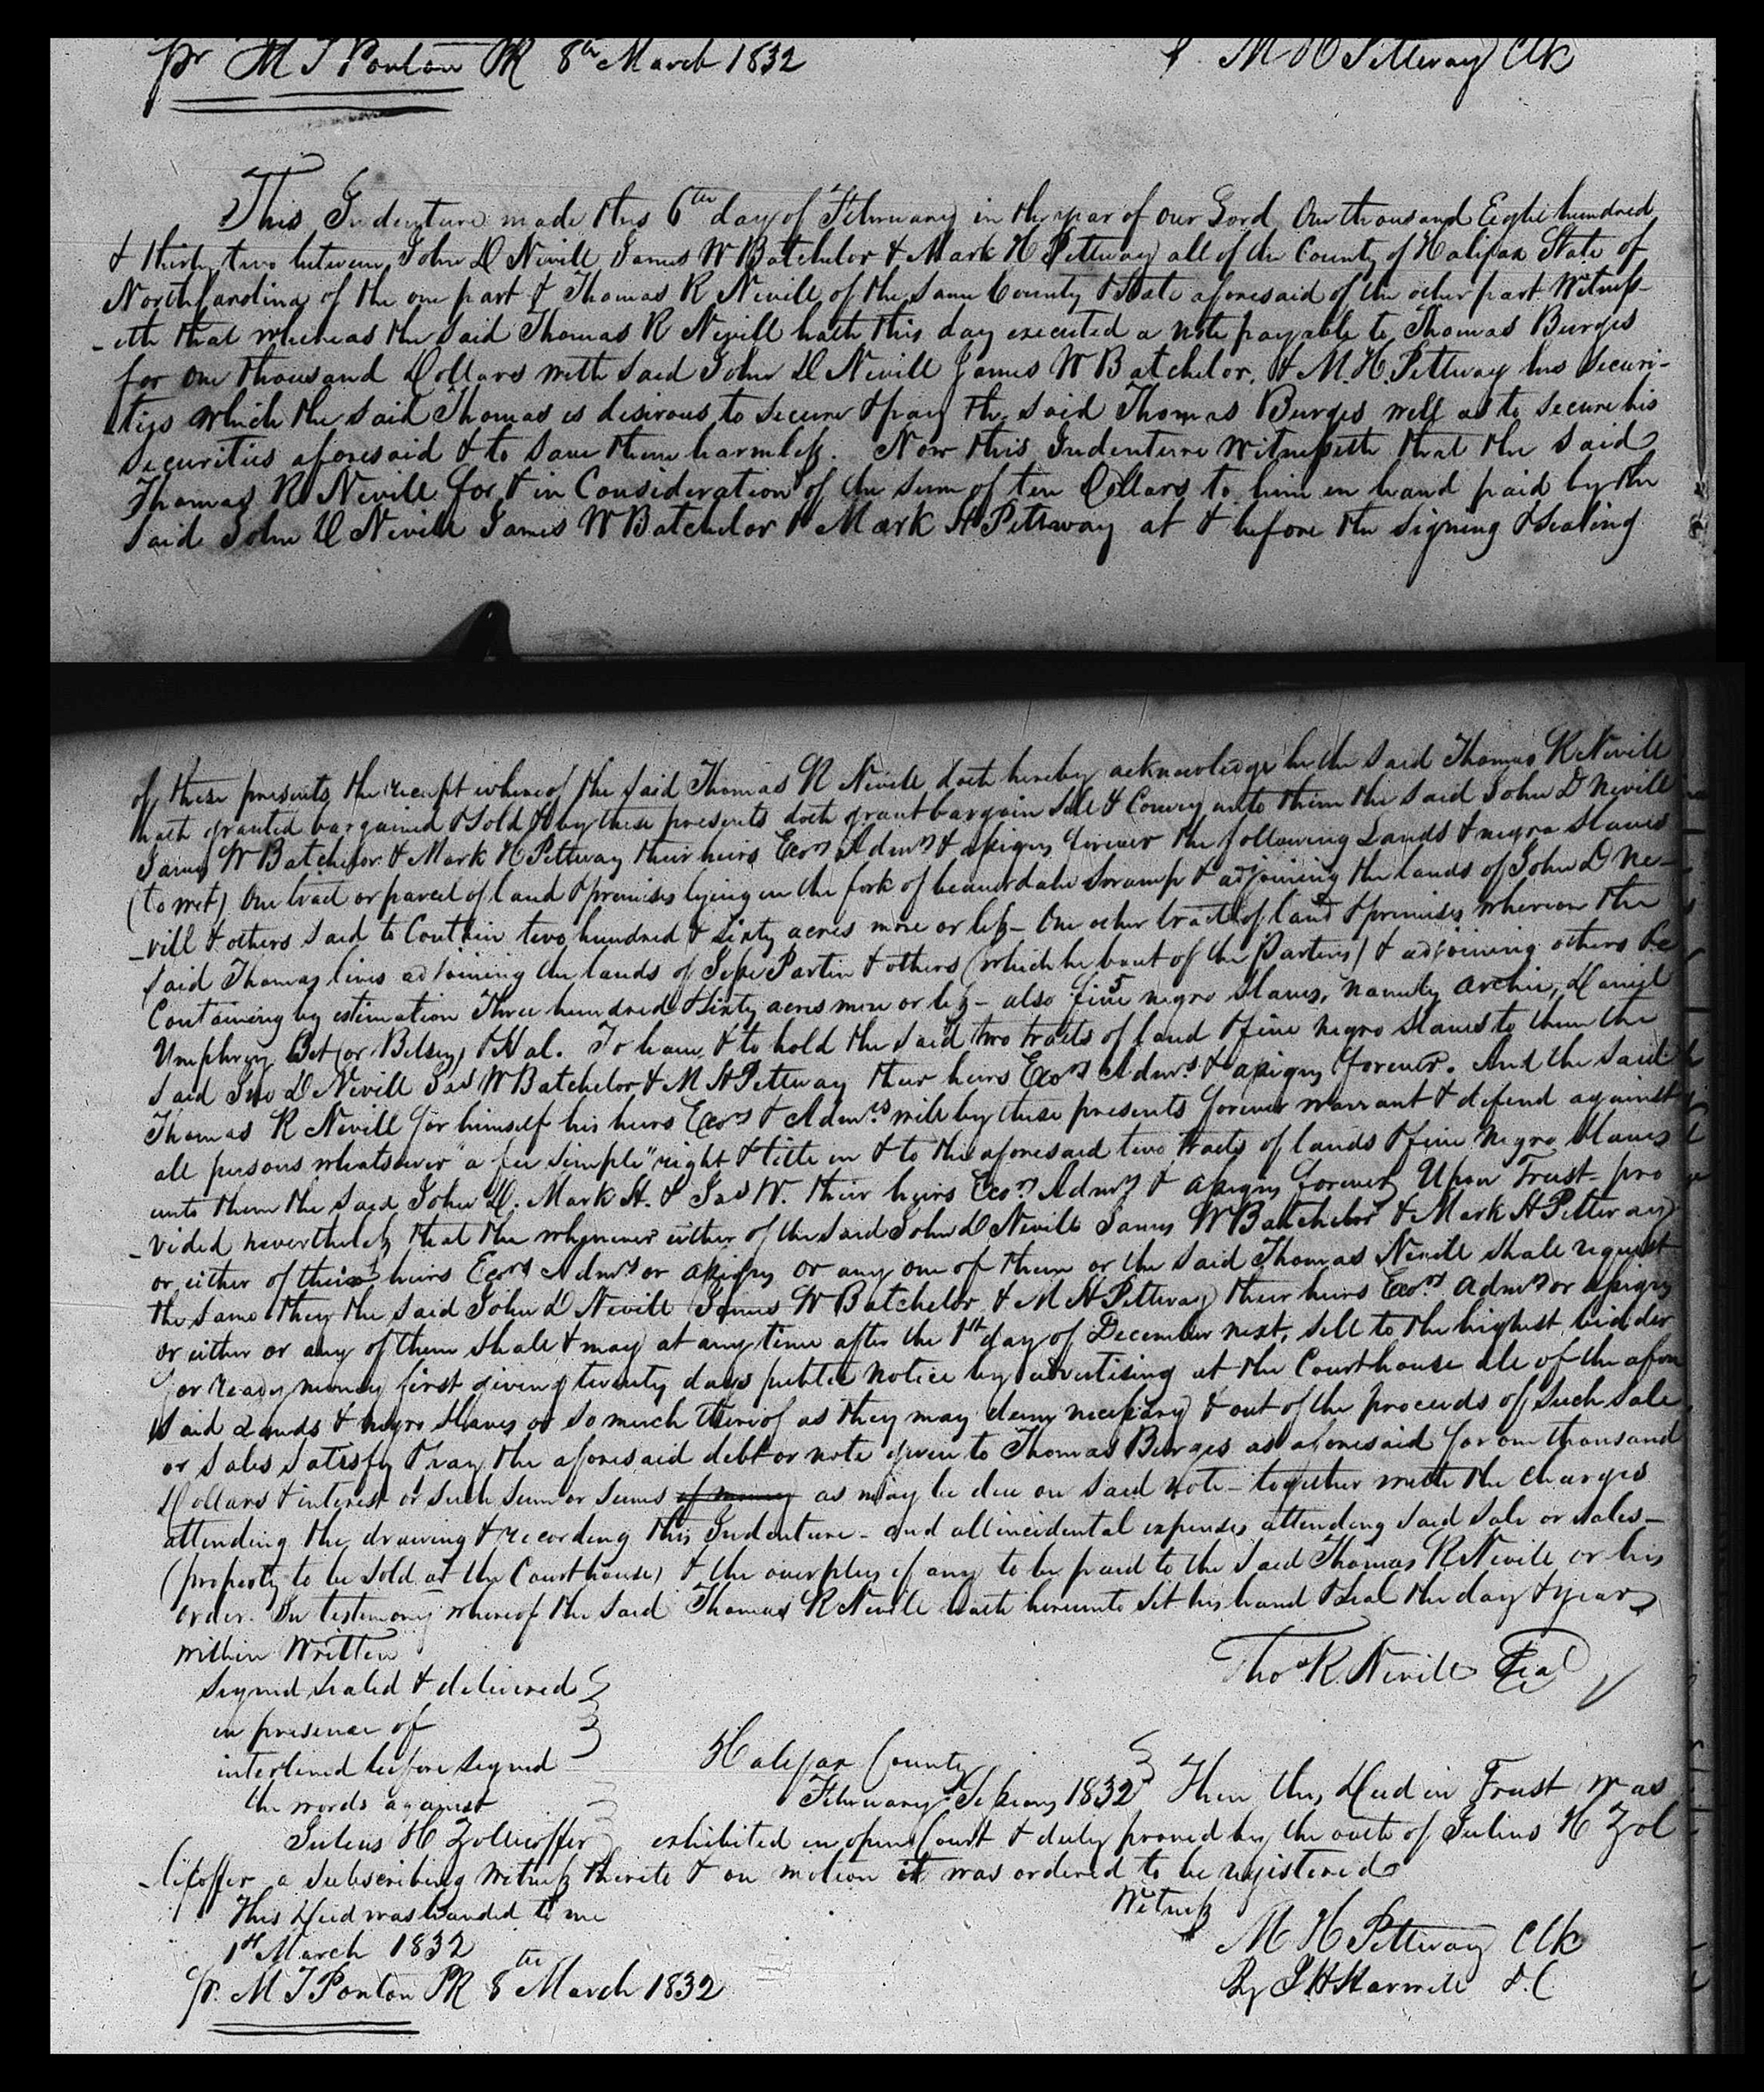 pr M T Ponton PR 8th March 1832 M H Pettway Clk
This Indenture made this 6th day of February in the year of our Lord One thousand Eight hundred
& thirty two between John D Nevill James W Batchelor & Mark H Pettway all of the County of Halifax State of
North Carolina of the one part & Thomas R Nevill of the same County & State aforesaid of the other part Witness-
-eth that whereas the said Thomas R Nevill hath this day executed a note payable to Thomas Burges
for one thousand Dollars with said John D Nevill James W Batchelor, & M. H. Pettway his securi-
ties which the said Thomas is desirous to secure & pay the said Thomas Burges well as to secure his
securities aforesaid & to save them harmless. Now this Indenture Witnesseth that the said
Thomas R Nevill for & in Consideration of the sum of ten Dollars to him in hand paid by the
said John D Nevill James W Batchelor & Mark H Pettway at & before the signing & sealing
of these presents, the receipt whereof the said Thomas R Nevill doth hereby acknowledge he the said Thomas R Nevill
hath granted bargained & sold & by these presents doth grant bargain sell & Convey unto them the said John D Nevill
James W Batchelor & Mark H Pettway their heirs Exors Admrs & assigns forever the following Lands & negro slaves
(to wit) One tract or parcel of land & premises lying in the fork of beaverdam swamp & adjoining the lands of John D Ne-
-vill & others said to Contain two hundred & sixty acres more or less - One other tract of land & premises whereon the
said Thomas lives adjoining the lands of Jesse Partin & others (which he bout of the Partins) & adjoining others &c
Containing by estimation Three hundred & sixty acres more or less - also five 5 negro slaves, namely Archie, Daniel
Umphrey Bet (or Betsey) & Hal. To have & to hold the said two tracts of land & five negro slaves to them the
said Jno D Nevill Jas W Batchelor & M H Pettway their heirs Exors Admrs & assigns forever. And the said
Thomas R Nevill for himself his heirs Exors & Admrs will by these presents forever warrant & defend against
all persons whatsoever "a fee simple" right & title in & to the aforesaid two tracts of lands & five negro slaves
unto them the said John D. Mark H. & Jas W. their heirs Exors Admrs & assigns forever Upon Trust - pro
-vided nevertheless that the whenever either of the said John D Nevill James W Batchelor & Mark H Pettway
or either of their heirs Exors Admrs or assigns or any one of them or the said Thomas Nevill shall request
the same they the said John D Nevill James W Batchelor & M H Pettway their heirs Exors Admrs or assigns
or either or any of them shall & may at any time after the 1st day of December next, sell to the highest bidder
for ready money first giving twenty days public notice by advertising at the Courthouse all of the afore
said Lands & negro slaves or so much thereof as they may deem necessary & out of the proceeds of such sale
or sales satisfy & pay the aforesaid debt or note given to Thomas Burges as aforesaid for one thousand
Dollars & interest or such sum or sums of money as may be due on said note - together with the charges
attending the drawing & recording this Indenture - and all incidental expenses attending said sale or sales -
(property to be sold at the Courthouse) & the overplus if any to be paid to the said Thomas R Nevill or his
order. In testimony whereof the said Thomas R Nevill hath hereunto set his hand & seal the day & year
within written
Thos R. Nevill Seal
Signed sealed & delivered
in presence of
interlined before signed
the words against
Julius H Zollicoffer
Halifax County
February Session 1832 Then this Deed in Trust was
exhibited in open Court & duly proved by the oath of Julius H Zol
-licoffer a subscribing witness thereto & on motion it was ordered to be registered
Witness
This Deed was handed to me
1st March 1832
M H Pettway Clk
pr. M T Ponton PR 8th March 1832
By J H Harwell D.C